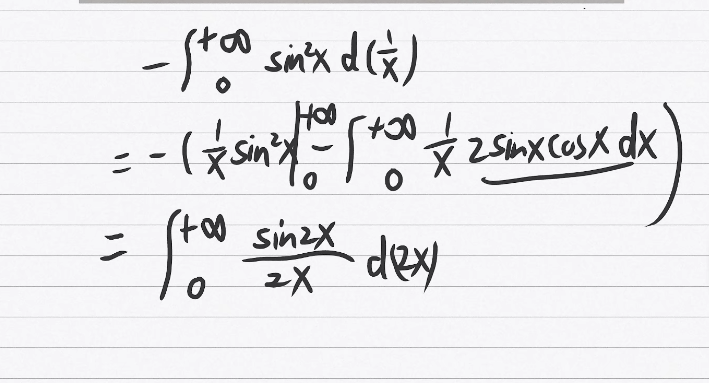 -∫₀^{+∞} sin²x d(1/x)
= -(1/x sin²x|₀^{+∞} - ∫₀^{+∞} 1/x 2sinxcosx dx)
= ∫₀^{+∞} sin2x/2x d(2x)